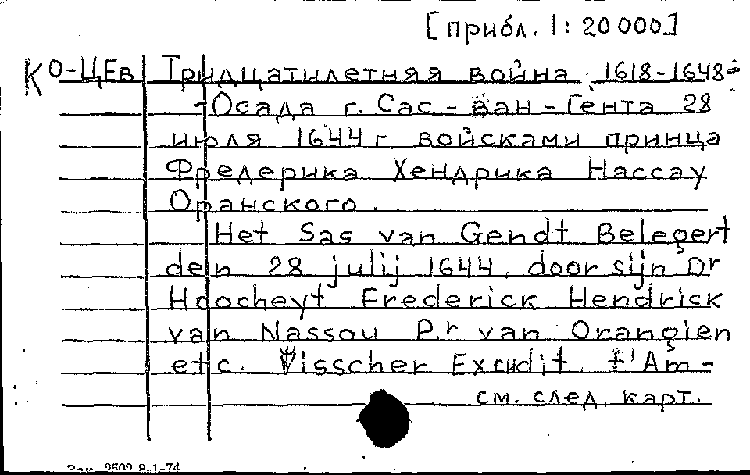 [прибл. 1:20000]
Ко-ЦЕв Тридцатилетняя война 1618-1648-
-Осада г. Сас-ван-Гента 28
июля 1644 г войсками принца
Фредерика Хендрика Нассау
Оранского.
Het Sas van Gendt Belegert
den 28 julij 1644, door sijn Dr
Hoocheyt Frederick Hendrick
van Nassou P.r van Orangien
etc. Visscher Excudit t'Am-
см. след. карт.
Зак. 9502 8-1-74